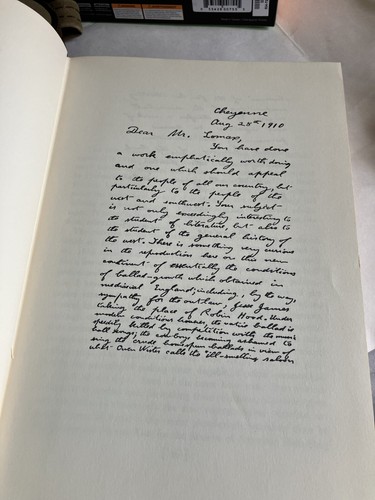 Cheyenne
Aug 28th 1910
Dear Mr. Lomax,
You have done
a work emphatically worth doing
and one which should appeal
to the people of all our country, but
particularly to the people of the
west and southwest. Your subject
is not only exceedingly interesting to
the student of literature, but also to
the student of the general history of
the west. There is something very curious
in the reproduction here on this new
continent of essentially the conditions
of ballad-growth which obtained in
mediæval England; including, by the way,
sympathy for the outlaw, Jesse James
taking the place of Robin Hood. Under
modern conditions however, the native ballad is
speedily killed by competition with the music
hall songs; the cowboys becoming ashamed to
sing the crude homespun ballads in view of
what Owen Wister calls the "ill-smelling saloon